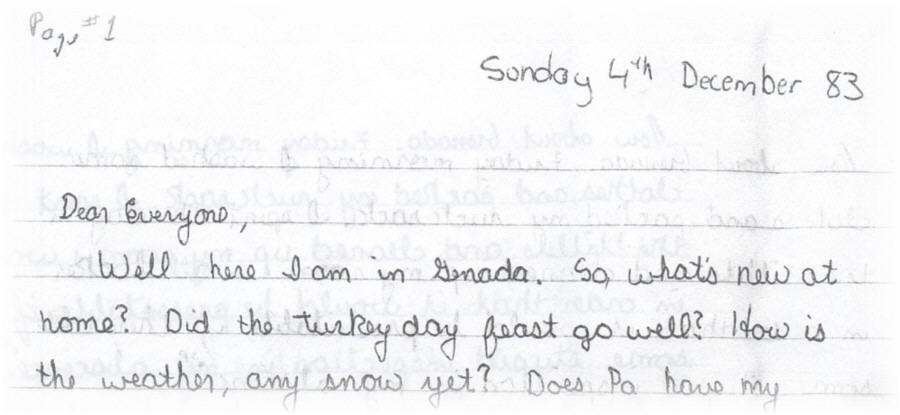 Page #1
Sunday 4th December 83
Dear Everyone,
Well here I am in Grenada. So, what's new at
home? Did the turkey day feast go well? How is
the weather, any snow yet? Does Pa have my